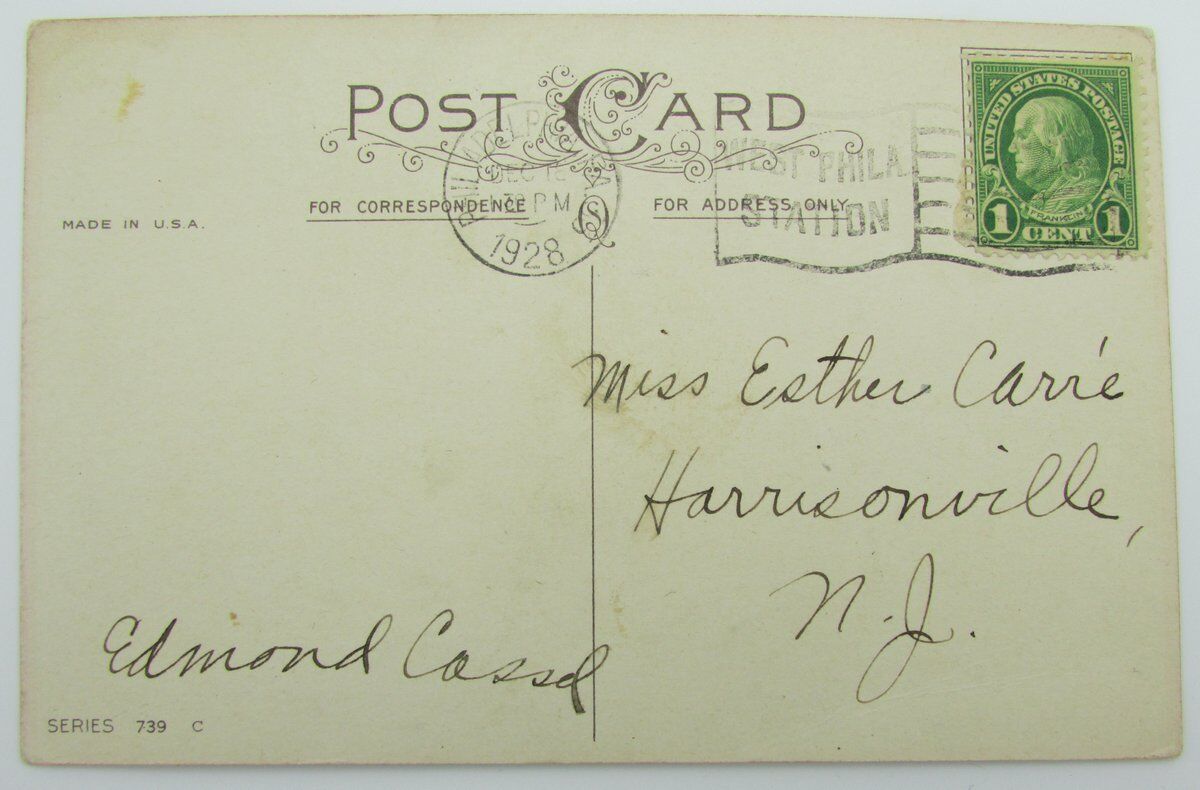 POST CARD
FOR CORRESPONDENCE
FOR ADDRESS ONLY
MADE IN U.S.A.
PHILADELPHIA
DEC
PM
1928
WEST PHILA.
STATION
UNITED STATES POSTAGE
FRANKLIN
1 CENT 1
Miss Esther Carrie
Harrisonville,
N.J.
Edmond Cassel
SERIES 739 C